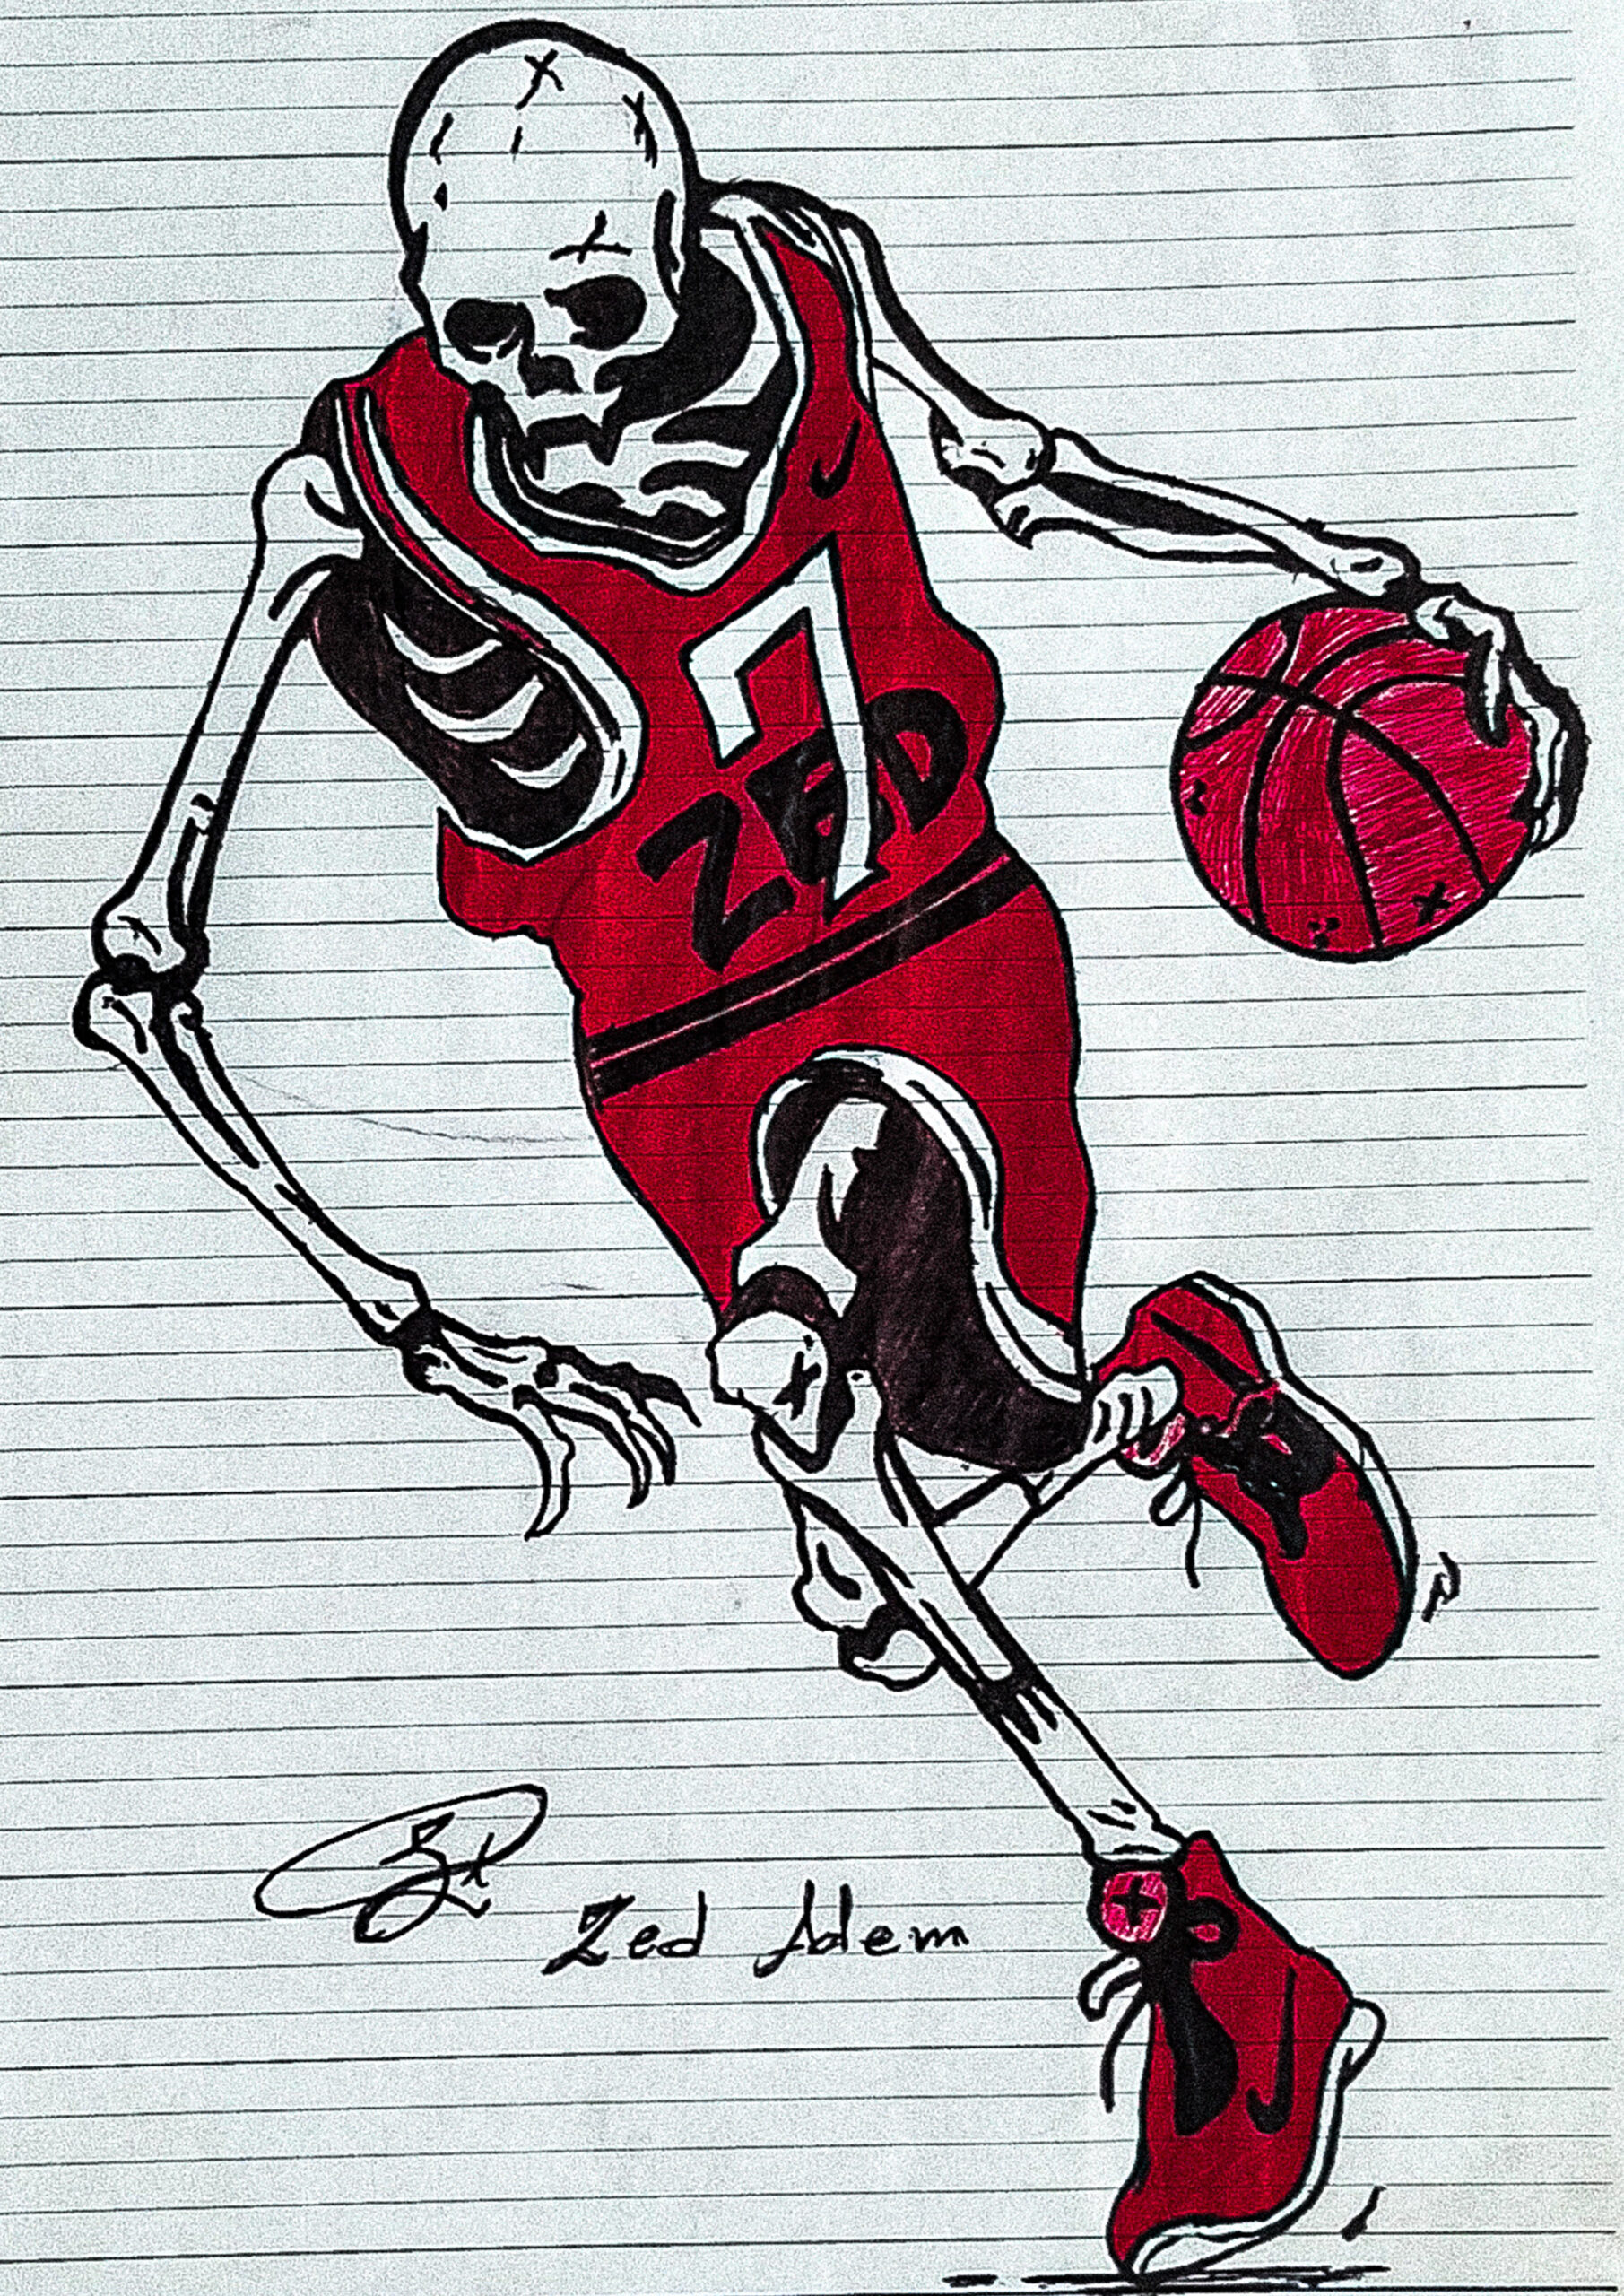 1
ZED
Zed Adem